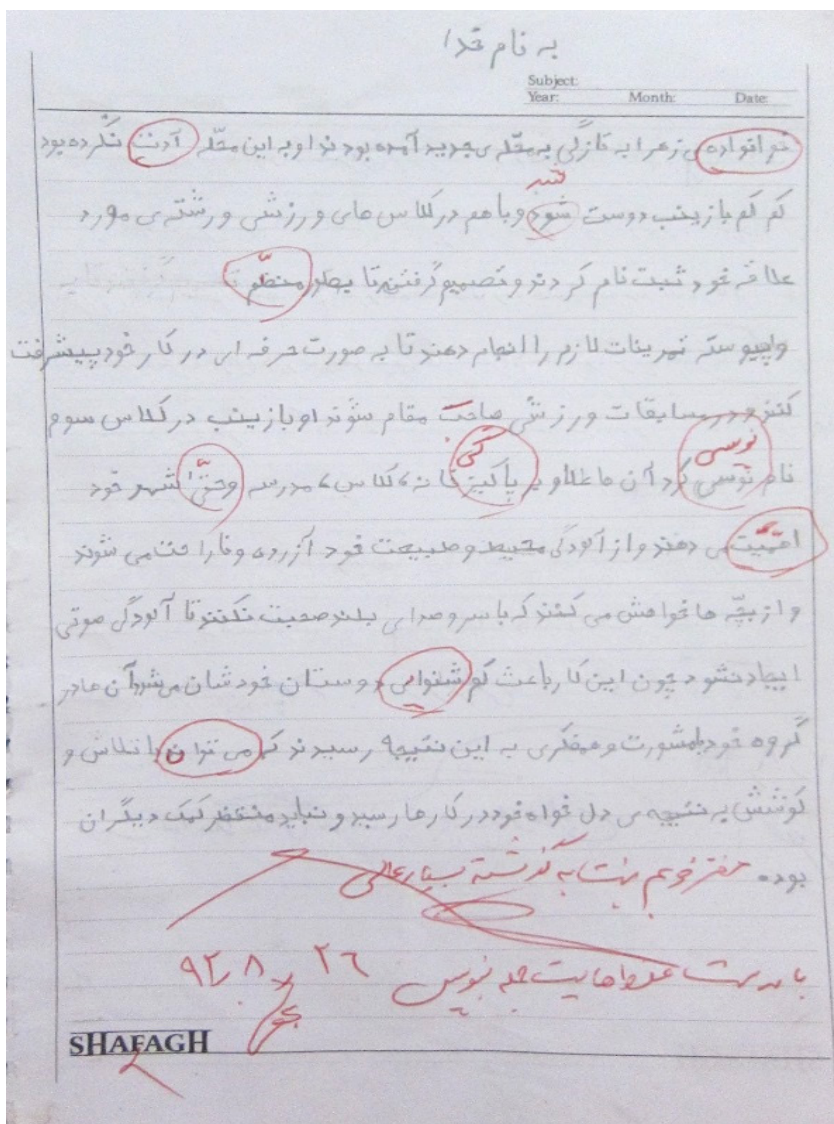 به نام خدا
Subject:
Year: Month: Date:
خوانواده ی زهرا به تازگی به محلّه ی جدید آمده بودند او به این محلّه آدت نکرده بود
شد
کم کم با زینب دوست شود و باهم در کلاس های ورزشی و رشته ی مورد
علاقه خود ثبت نام کردند و تصمیم گرفتند تا بطور منظّم
و پیوسته تمرینات لازم را انجام دهند تا به صورت حرفه ای در کار خود پیشرفت
کنند و در مسابقات ورزشی صاحب مقام شوند او با زینب در کلاس سوم
نویسی گی
نام نوسی کرد آن ها علاو بر پاکیز خانه، کلاس، مدرسه وحتّی شهر خود
اهمّیت می دهند و از آلودگی محیط و طبیعت خود آزرده و ناراحت می شوند
و از بچّه ها خواهش می کنند که با سر و صدای بلند صحبت نکنند تا آلودگی صوتی
ایجاد نشود چون این کار باعث کم شنوایی دوستان خودشان می شود آن ها در
گروه خود با مشورت و همفکری به این نتیجه رسیدند که می توان با تلاش و
کوشش به نتیجه ی دل خواه خود در کارها رسید و نباید منتظر کمک دیگران
بوده دفتر خوبم نسبت به گذشته بسیار عالی
با ۲۶ ۸ ۹۲
SHAFAGH